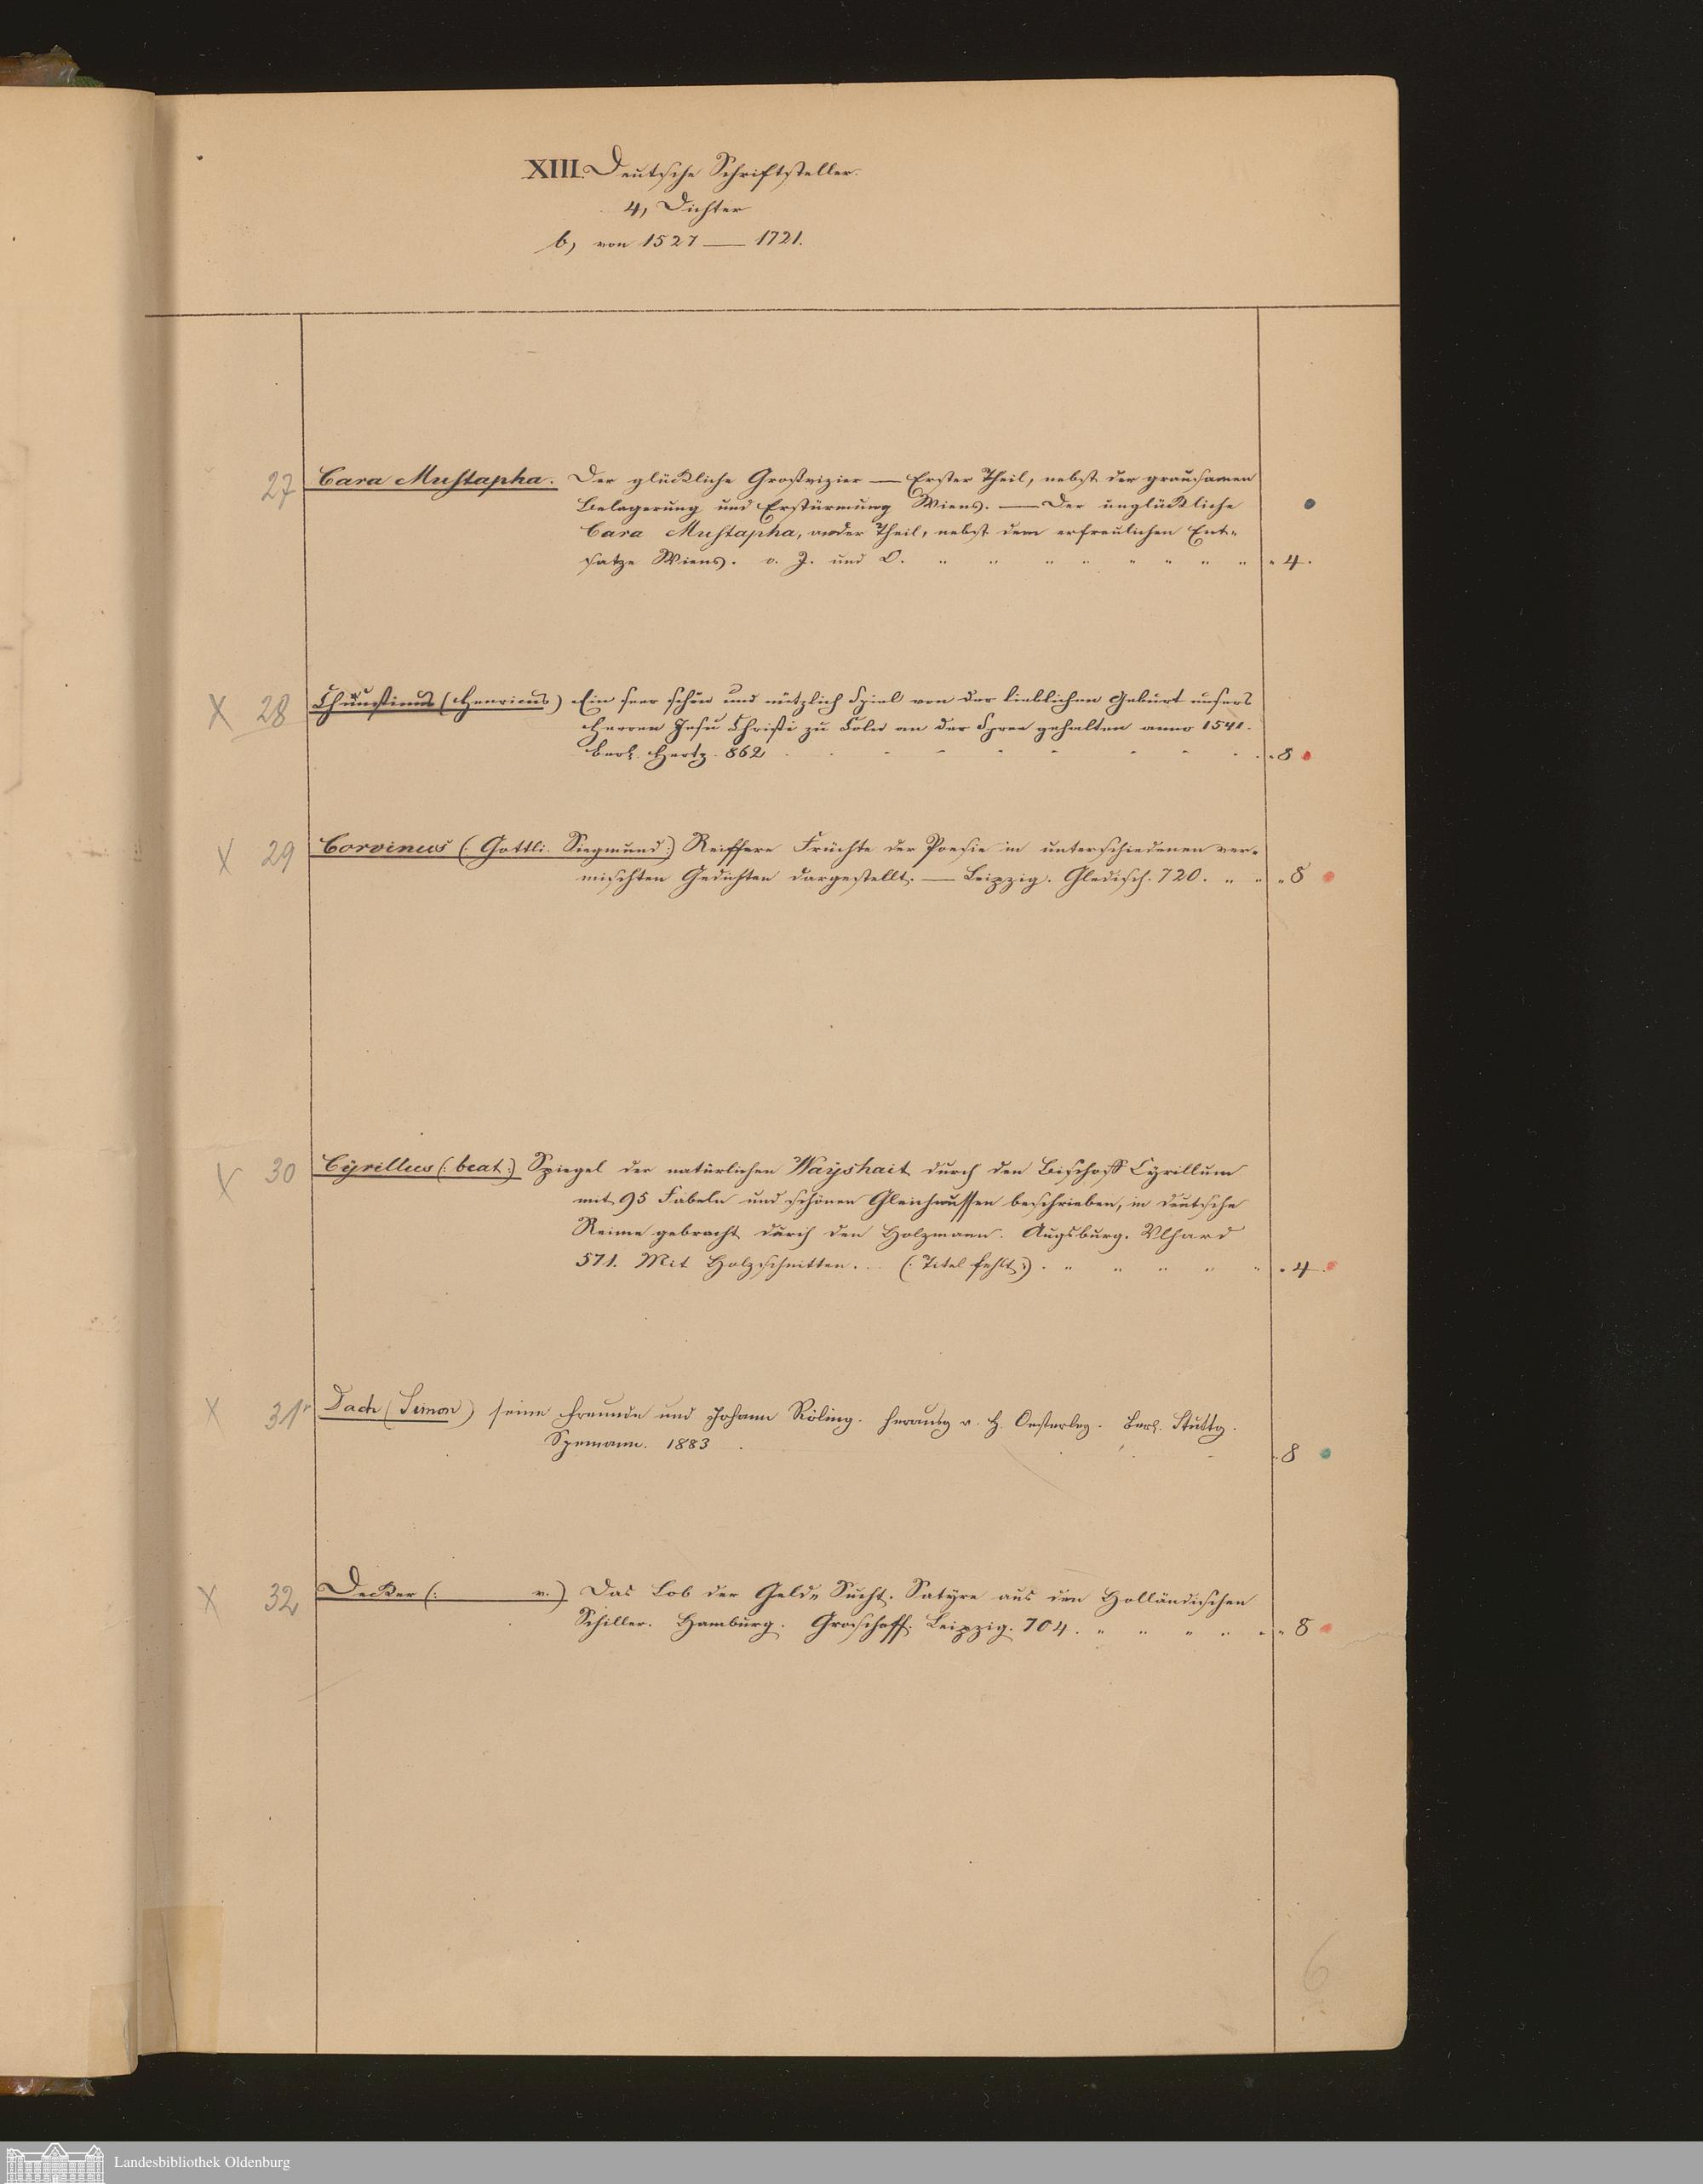 XIII. Deutsche Schriftsteller.
4, Dichter
b, von 1527 — 1721.
27 Cara Mustapha. Der glückliche Großvizier — Erster Theil, nebst der grausamen
Belagerung und Erstürmung Wiens. — Der unglückliche
Cara Mustapha, ander Theil, nebst dem erfreulichen Ent-
satze Wiens. o. J. und O. " " " " " " " " " 4.
X 28 (Henricus) Ein seer schön und nützlich Spiel von der lieblichen Geburt unsers
Herren Jesu Christi zu Cöln an der Spree gehalten anno 1541.
Berl. Hertz. 862 8
X 29 Corvinus (: Gottli. Siegmund :) Reiffere Früchte der Poesie in unterschiedenen ver-
mischten Gedichten dargestellt. — Leipzig. Gledisch. 720. " " " 8
X 30 Cyrillus (: beat :) Spiegel der natürlichen Wayshait durch den Bischoff Cyrillum
mit 95 Fabeln und schönen Gleichnussen beschrieben, in deutsche
Reime gebracht durch den Holzmann. Augsburg. Ulhard
571. Mit Holzschnitten. (: Titel fehlt :) . " " " " " " 4.
X 31 Dach (Simon) seine Freunde und Johann Röling. Herausg v. H. Oesterley. Berl. Stuttg.
Spemann. 1883 8
X 32 Decker (: v.) Das Lob der Geld-Sucht. Satyre aus den Holländischen
Schiller. Hamburg. Groschoff. Leipzig. 704. " " " " " " 8
6
Landesbibliothek Oldenburg